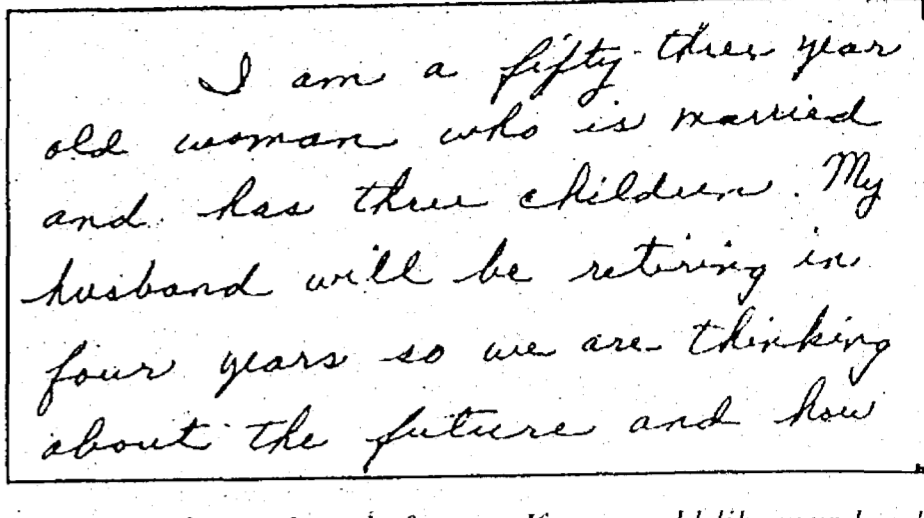 I am a fifty-three year
old woman who is married
and has three children. My
husband will be retiring in
four years so we are thinking
about the future and how